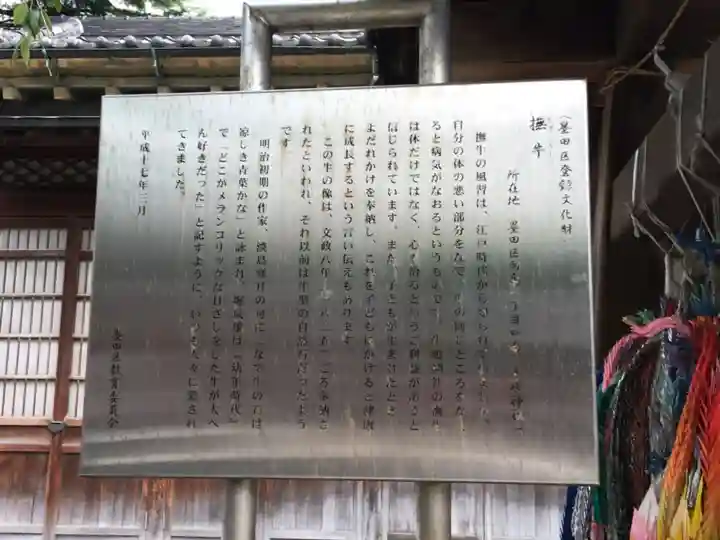 〈墨田区登録文化財〉
撫牛
所在地 墨田区向島
撫牛の風習は、江戸時代から知られていました。
自分の体の悪い部分をなで、牛の同じところをな
ると病気がなおるというもので
は体だけではなく、心も治るというご利益があると
信じられています。また、子どもが生まれたとき
よだれかけを奉納し、これを子どもにかけると健康
に成長するという言い伝えもあります。
この牛の像は、文政八年 ころ奉納さ
れたといわれ、それ以前は牛型の自然石だったよう
です。
明治初期の作家、淡島寒月の句に「なで牛の石は
涼しき青葉かな」と詠まれ、堀辰雄は「幼年時代」
で「どこかメランコリックな目ざしをした牛が大へ
ん好きだった」と記すように、いつも人々に愛され
てきました。
平成十七年三月
墨田区教育委員会